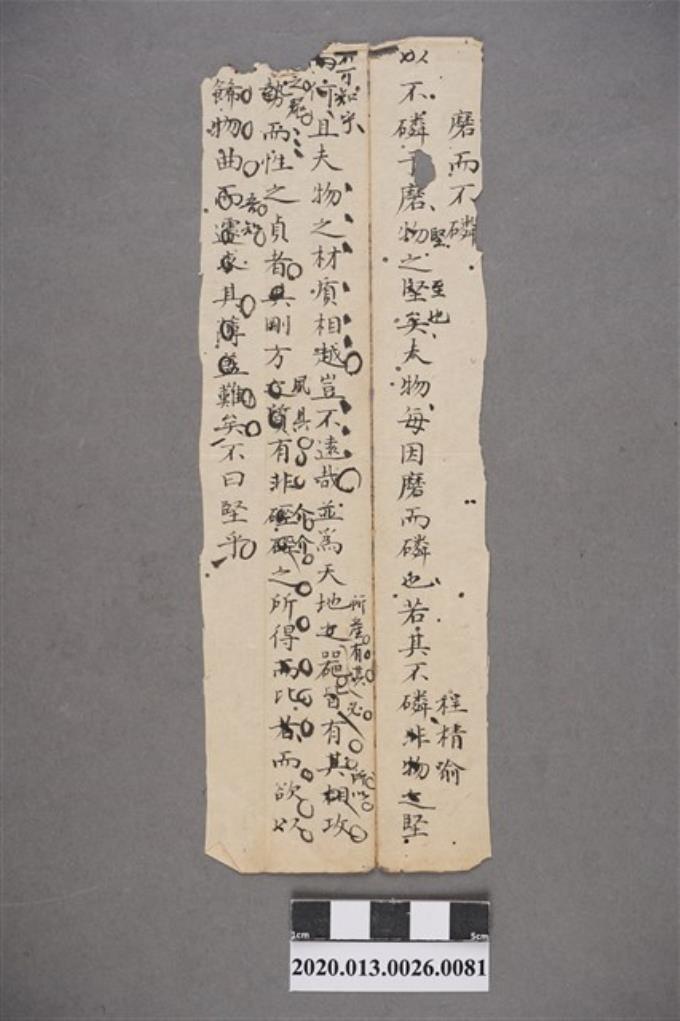 磨而不磷
程楕喻
以不磷于磨物之堅矣夫物每因磨而磷也若其不磷非物之堅
堅至也
而何且夫物之材質相越豈不遠哉並為天地之器皆有其相攻
不可知乎
所產有其必
所以
勢而性之貞者具剛方之質有非硜硜之所得而比者而欲以
夙具
介介
餙物曲而還求其薄蓋難矣不曰堅乎
1cm 5cm
2020.013.0026.0081